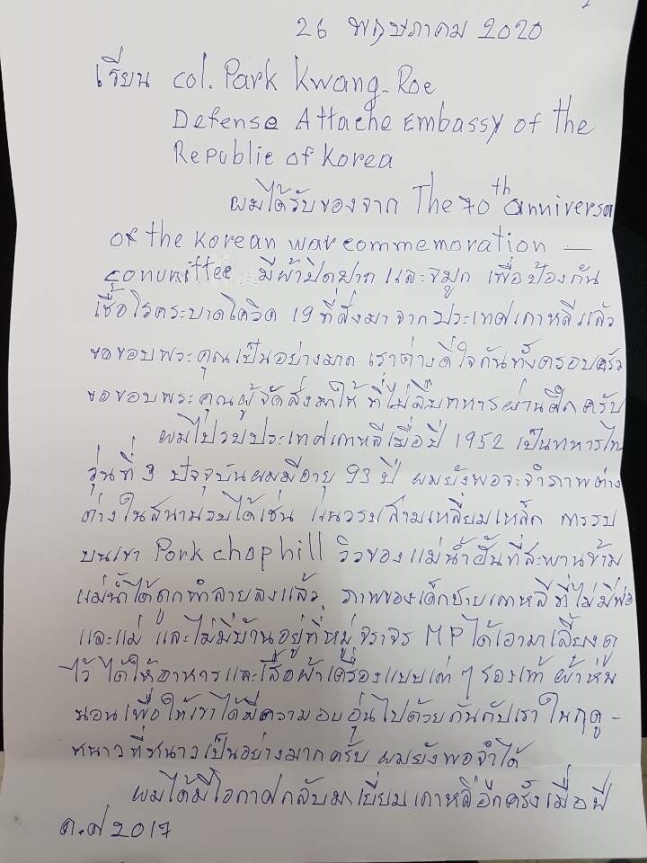 26 พฤษภาคม 2020
เรียน col. Park Kwang-Roe
Defense Attache Embassy of the
Republic of Korea
ผมได้รับของจาก The 70th anniversa
of the Korean war commemoration —
committee มีผ้าปิดปาก และจมูก เพื่อป้องกัน
เชื้อโรคระบาดโควิด 19 ที่ส่งมาจากประเทศเกาหลีแล้ว
ขอขอบพระคุณเป็นอย่างมาก เราต่างดีใจกันทั้งครอบครัว
ขอขอบพระคุณผู้จัดส่งมาให้ ที่ไม่ลืมทหารผ่านศึกครับ
ผมไปรบประเทศเกาหลีเมื่อปี 1952 เป็นทหารไท
รุ่นที่ 3 ปัจจุบันผมมีอายุ 93 ปี ผมยังพอจะจำภาพต่าง
ต่างในสนามรบได้เช่น แนวรบสามเหลี่ยมเหล็ก การรบ
บนเขา Pork chop hill วิวของแม่น้ำฮั่นที่สะพานข้าม
แม่น้ำได้ถูกทำลายลงแล้ว ภาพของเด็กชายเกาหลีที่ไม่มีพ่อ
และแม่ และไม่มีบ้านอยู่ที่หมู่จราจร MP ได้เอามาเลี้ยงดู
ไว้ ได้ให้อาหารและเสื้อผ้าเครื่องแบบเก่า ๆ รองเท้า ผ้าห่ม
นอนเพื่อให้เขาได้มีความอบอุ่นไปด้วยกันกับเรา ในฤดู-
หนาวที่หนาวเป็นอย่างมากครับ ผมยังพอจำได้
ผมได้มีโอกาศกลับมาเยี่ยมเกาหลีอีกครั้งเมื่อปี
ค.ศ 2017